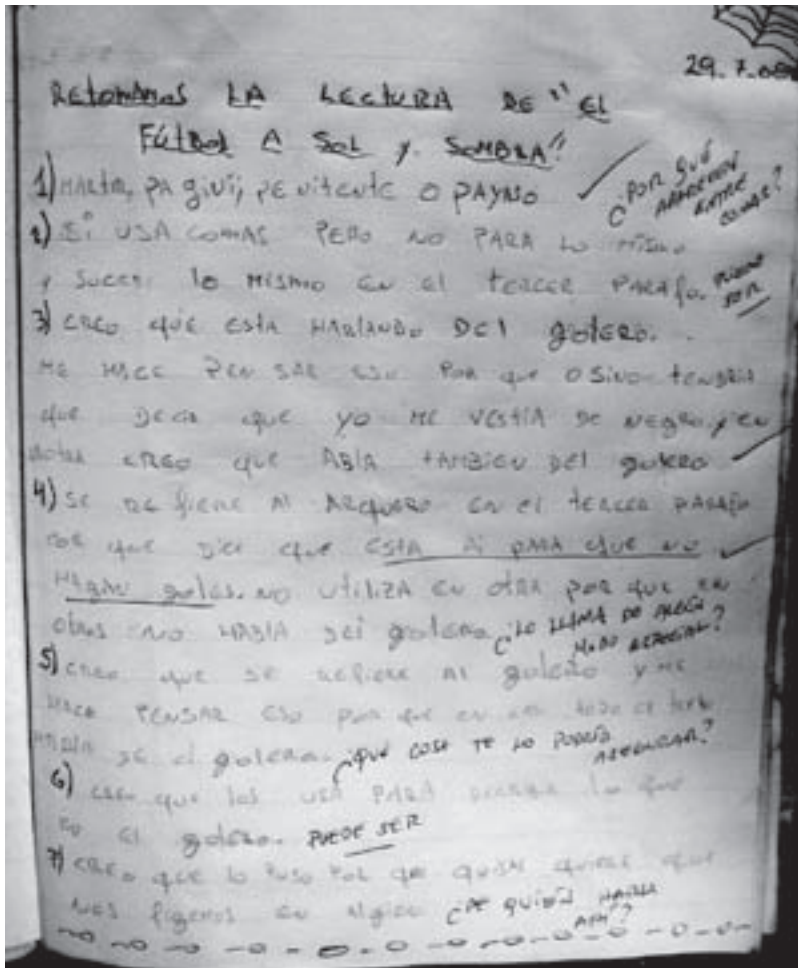 29.7.08
RETOMAMOS LA LECTURA DE "EL
FÚTBOL A SOL Y SOMBRA"
1) MARTIR, O PAYASO ¿POR QUÉ APARECEN ENTRE COMAS?
2) SÍ USA COMAS PERO NO PARA LO MISMO
y SUCEDE lo MISMO EN el tERCER PARAfo. PUEDE SER
3) CREO qUE ESTA HABLANDO DEl golERO.
ME HACE PENSAR ESO POR que O SINO tENDRIA
que DECIR que yo ME VEStíA DE NEGRO y EN
CREO que ABlA tAMBIEN DEl golERO
4) SE RE fiERE Al ARquERO EN el tERCER PARAfo
POR que DICE que EStA AI PARA que NO
HAgAN golES. NO UtiliZA EN OtRA POR que EN
OtRAS NO HABlA DEl golERO ¿LO LLAMA DE ALGÚN MODO ESPECIAL?
5) CREO que SE REfiERE Al golERO y ME
HACE PENSAR ESO POR que EN todo El
HABlA DE el golERO. ¿QUÉ COSA TE LO PODRÍA ASEGURAR?
6) que los USA PARA lo que
el golERO. PUEDE SER
7) CREO que lo PUSO POR que quiERE que
NOS figEMOS EN AlgiEN ¿DE QUIÉN HABLA AHÍ?